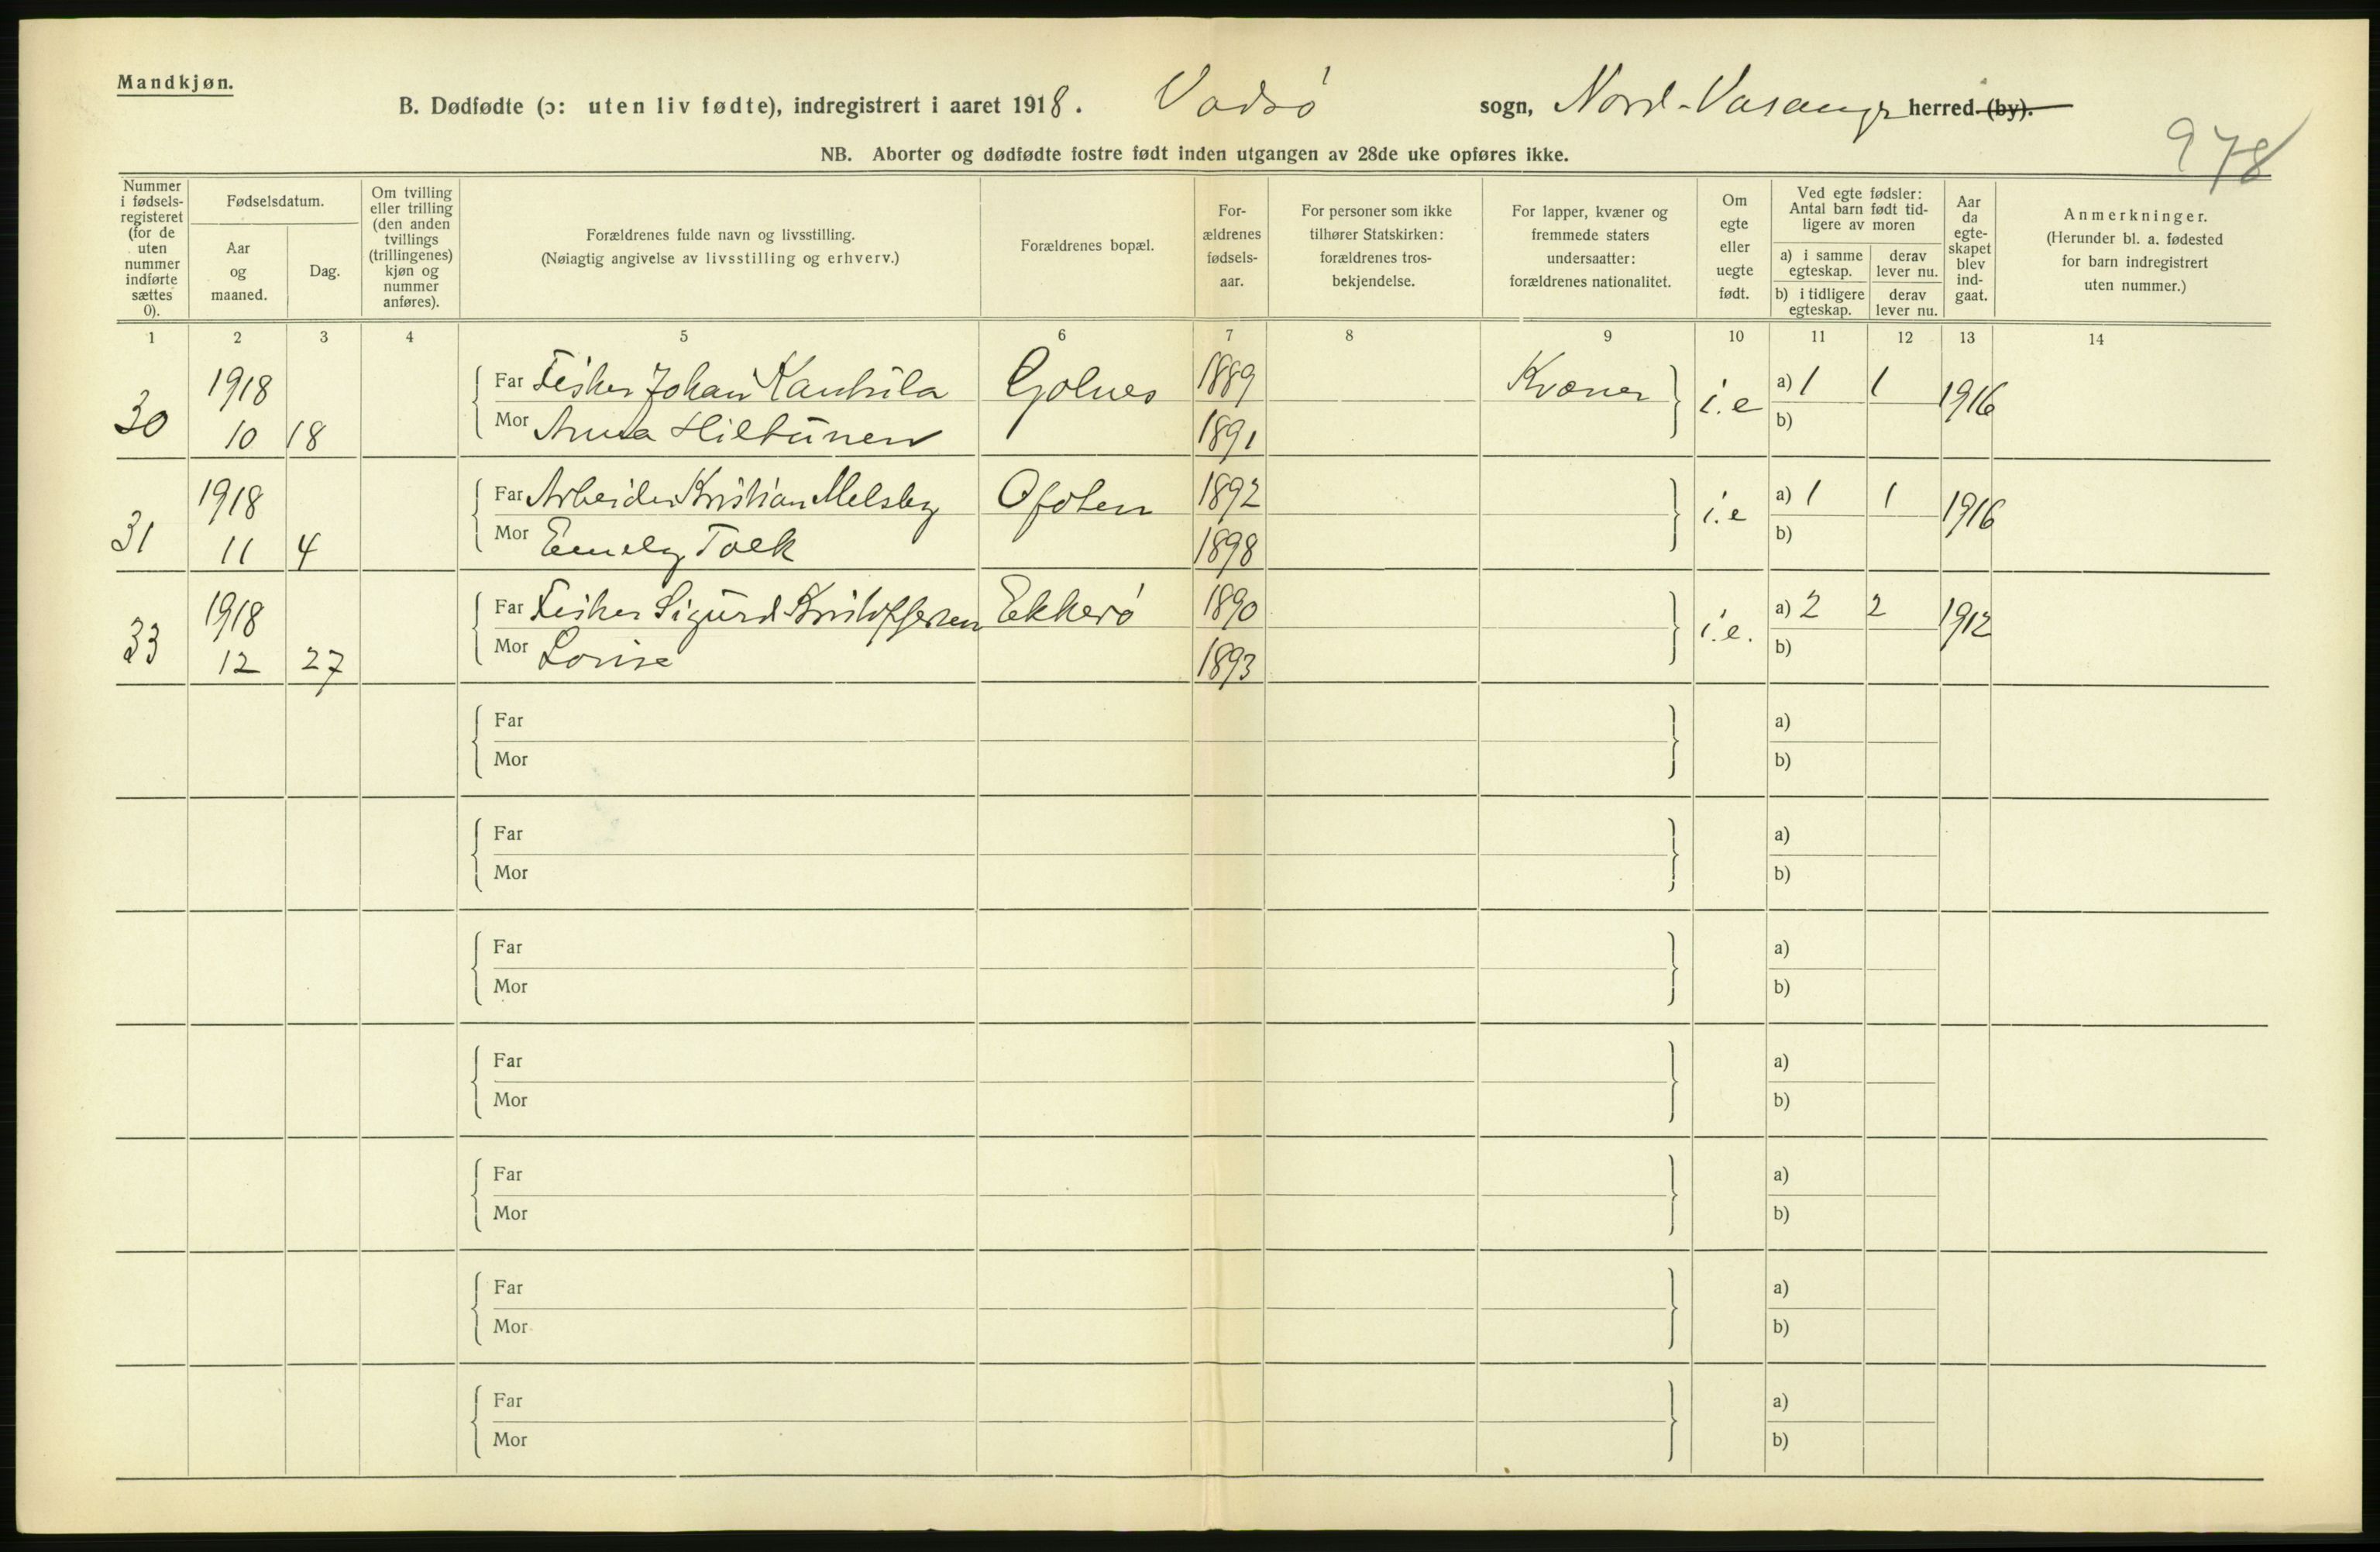 Mandkjøn.
B. Dødfødte (ɔ: uten liv fødte), indregistrert i aaret 1918. Vadsö sogn, Nord-Varanger herred (by).
978
NB. Aborter og dødfødte fostre født inden utgangen av 28de uke opføres ikke.
Nummer i fødsels-registeret (for de uten nummer indførte sættes 0).
Fødselsdatum.
Aar og maaned.
Dag.
Om tvilling eller trilling (den anden tvillings (trillingenes) kjøn og nummer anføres).
Forældrenes fulde navn og livsstilling.
(Nøiagtig angivelse av livsstilling og erhverv.)
Forældrenes bopæl.
For-ældrenes fødsels-aar.
For personer som ikke tilhører Statskirken: forældrenes tros-bekjendelse.
For lapper, kvæner og fremmede staters undersaatter: forældrenes nationalitet.
Om egte eller uegte født.
Ved egte fødsler: Antal barn født tid-ligere av moren
a) i samme egteskap.
derav lever nu.
b) i tidligere egteskap.
derav lever nu.
Aar da egte-skapet blev ind-gaat.
Anmerkninger.
(Herunder bl. a. fødested for barn indregistrert uten nummer.)
1 2 3 4 5 6 7 8 9 10 11 12 13 14
1918 Far Fisker Johan Golnes 1889 Kvæner a) 1 1
30 10 18 Mor Anna Hiltunen 1891 i.e b) 1916
1918 Far Arbeider Kristian Melsby Ofoten 1892 a) 1 1
31 11 4 Mor Emely 1898 i.e b) 1916
1918 Far Fisker Sigurd Kristoffersen Ekkerö 1890 a) 2 2
33 12 27 Mor Lovise 1893 i.e. b) 1912
Far a)
Mor b)
Far a)
Mor b)
Far a)
Mor b)
Far a)
Mor b)
Far a)
Mor b)
Far a)
Mor b)
Far a)
Mor b)